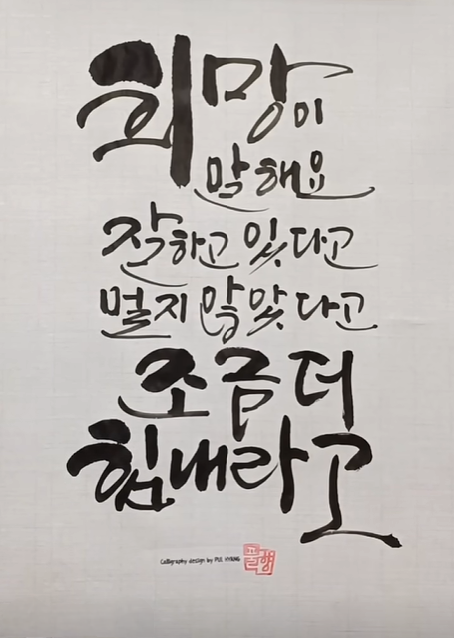 희망이
말해요
잘하고 있다고
멀지 않았다고
조금 더
힘내라고
Calligraphy design by PUL HYANG
풀향